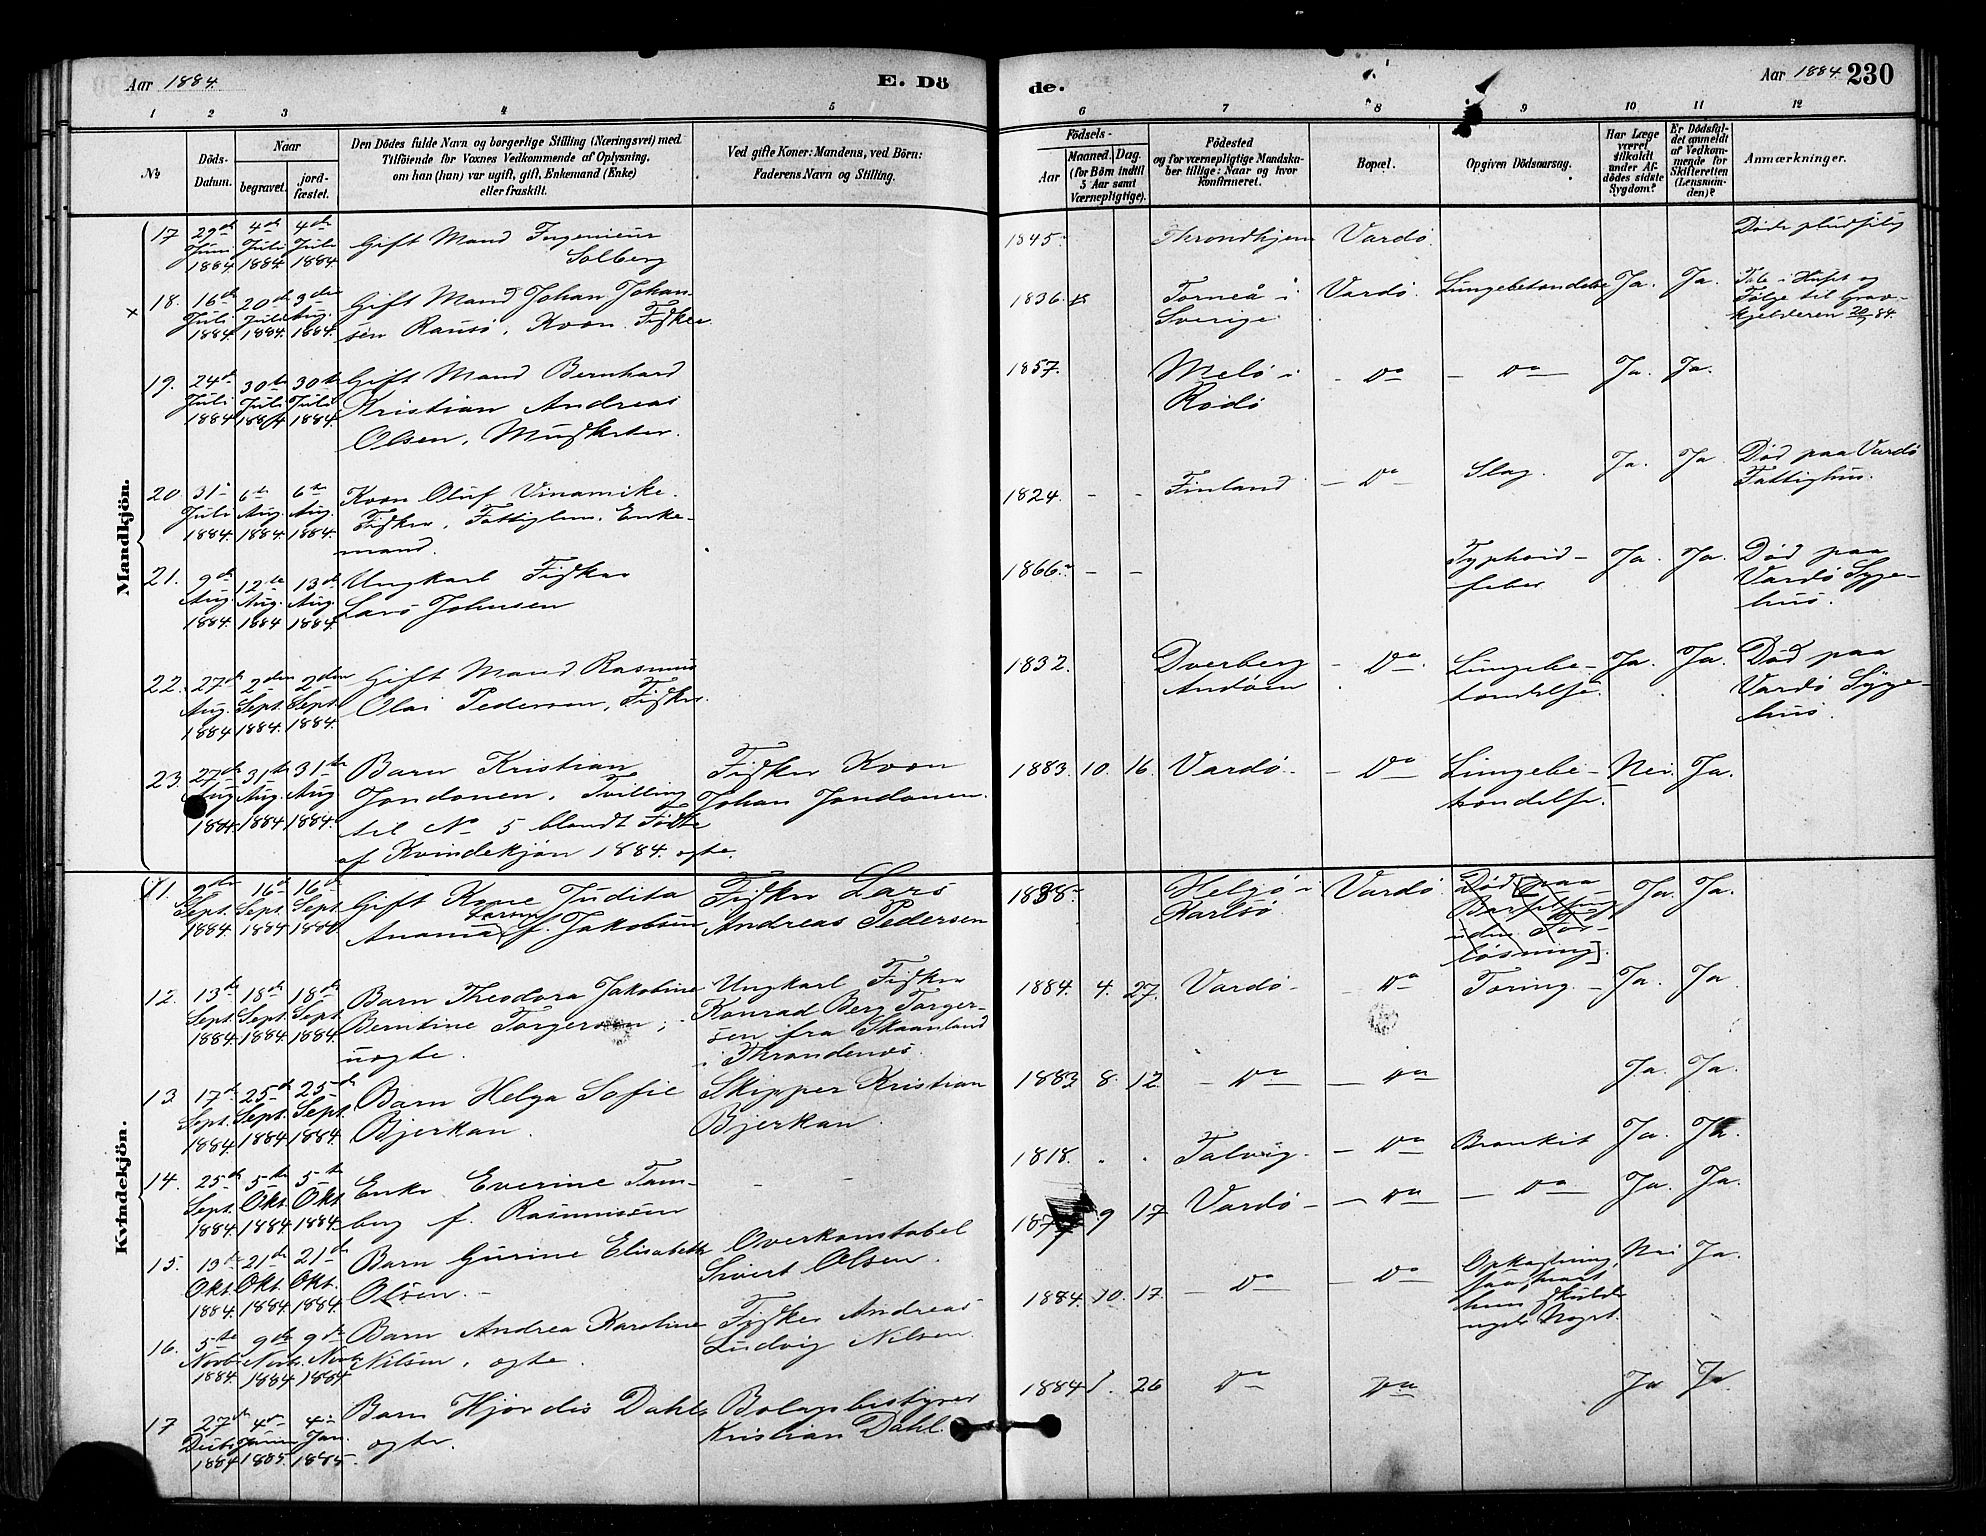 Aar 1884.
E. Dö
de.
Aar 1884.
230
1 2 3 4 5 6 7 8 9 10 11 12
No
Döds-
Datum.
Naar
begravet.
jord-
fæstet.
Den Dödes fulde Navn og borgerlige Stilling (Næringsvei) med
Tilföiende for Voxnes Vedkommende af Oplysning,
om han (hun) var ugift, gift, Enkemand (Enke)
eller fraskilt.
Ved gifte Koner: Mandens, ved Börn:
Faderens Navn og Stilling.
Födsels-
Aar
Maaned. Dag.
(for Börn indtil
5 Aar samt
Værnepligtige).
Födested
og for værnepligtige Mandska-
ber tillige: Naar og hvor
konfirmeret.
Bopæl.
Opgiven Dödsaarsag.
Har Læge
været
tilkaldt
under Af-
dödes sidste
Sygdom?
Er Dödsfal-
det anmeldt
af Vedkom-
mende for
Skifteretten
(Lensman-
den)?
Anmærkninger.
Mandkjön.
17 29de Juni 1884 4de Juli 1884 4de Juli 1884. Gift Mand Ingenieur
Solberg
1845. Throndhjem Vardö. Döde pludselig
18. 16de Juli 1884 20de Juli 1884. 3die Aug. 1884. Gift Mand Johan Johan-
sen Rausö, Kvæn. Fisker.
1836. Torneå i
Sverige Vardö. Lungebetændelse Ja. Ja. Tale i Huset og
Følge til Grav-
19. 24de Juli 1884 30te Juli 1884 30te Juli 1884. Gift Mand Bernhard
Kristian Andreas
Olsen,
1857. Melö i
Rödö - Do - Do - Ja. Ja.
20 31te Juli 1884 6te Aug. 1884. 6te Aug. 1884. Kvæn Oluf Vinamike.
Fisker, Fattiglem. Enke-
mand.
1824. - - Finland - Do Slag. Ja. Ja Död paa Vardö
Fattighus.
21. 9de Aug. 1884 12te Aug. 1884 13de Aug. 1884. Ungkarl Fisker
Lars Johnsen
1866. - - Typhoid-
feber Ja. Ja. Död paa
Vardö Syge-
hus.
22. 27de Aug. 1884 2den Sept. 1884. 2den Sept. 1884. Gift Mand Rasmus
Olai Pedersen, Fisker.
1832. Dverberg
Andöen - Do. Lungebe-
tændelse. Ja. Ja. Död paa
Vardö Syge-
hus.
23. 27de Aug 1884. 31te Aug. 1884 31te Aug 1884. Barn Kristian
Jondonen, Tvilling
til No 5 blandt Födte
af Kvindekjön 1884. ægte.
Fisker Kvæn
Johan Jondonen.
1883. 10. 16. Vardö. - Do Lungebe-
tændelse. Nei. Ja.
Kvindekjön.
11. 9de Sept. 1884. 16de Sept. 1884 16de Sept. 1884 Gift Kone Judita
Anania f. Jakobsen
Fisker Lars
Andreas Pedersen
1838. Helgö i
Karlsö. Vardö. Död paa
Barselseng
uden For-
løsning]. Ja. Ja.
12. 13de Sept. 1884. 18de Sept. 1884. 18de Sept. 1884. Barn Theodora Jakobine
Berntine Torgersen,
uægte.
Ungkarl Fisker
Konrad Berg Torger-
sen fra Skaanland
i Throndenæs.
1884. 4. 27. Vardö - Do Tæring - Ja. Ja
13 17de Sept. 1884. 25de Sept. 1884 25de Sept. 1884. Barn Helga Sofie
Bjerkan.
Skipper Kristian
Bjerkan.
1883 8. 12 - Do - Do Ja. Ja.
14. 25de Sept. 1884 5te Okt 1884 5te Okt 1884. Enke Everine Tam-
berg f. Rasmussen
- -
1818. . . Talvig. - Do Bronkit Ja. Ja.
15. 13de Okt. 1884. 21de Okt. 1884 21de Okt. 1884 Barn Gurine Elisabeth
Olsen. -
Overkonstabel
Sivert Olsen.
9 17 Vardö - - Do - Do - Ja. Ja.
16. 5te Novb. 1884. 9de Novb. 1884 9de Novb. 1884 Barn Andrea Karoline
Nilsen, ægte.
Fisker Andreas
Ludvig Nilsen.
1884. 10. 17. - Do - Do Opkastning,
saasnart
hun skulde
nyde Noget. Nei Ja.
17 27de Decbr 1884 4de Januar 1885. 4de Jan. 1885. Barn Hjördis Dahl,
ægte.
Bolagsbestyrer
Kristian Dahl.
1884 1. 26 Do Do Ja Ja.